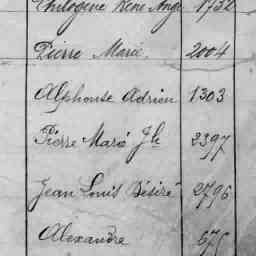 Philogène René Ange 1732
Pierre Marie, 2004
Alphonse Adrien 1303
Pierre Marie Jh 2397
Jean Louis Désiré 2796
Alexandre